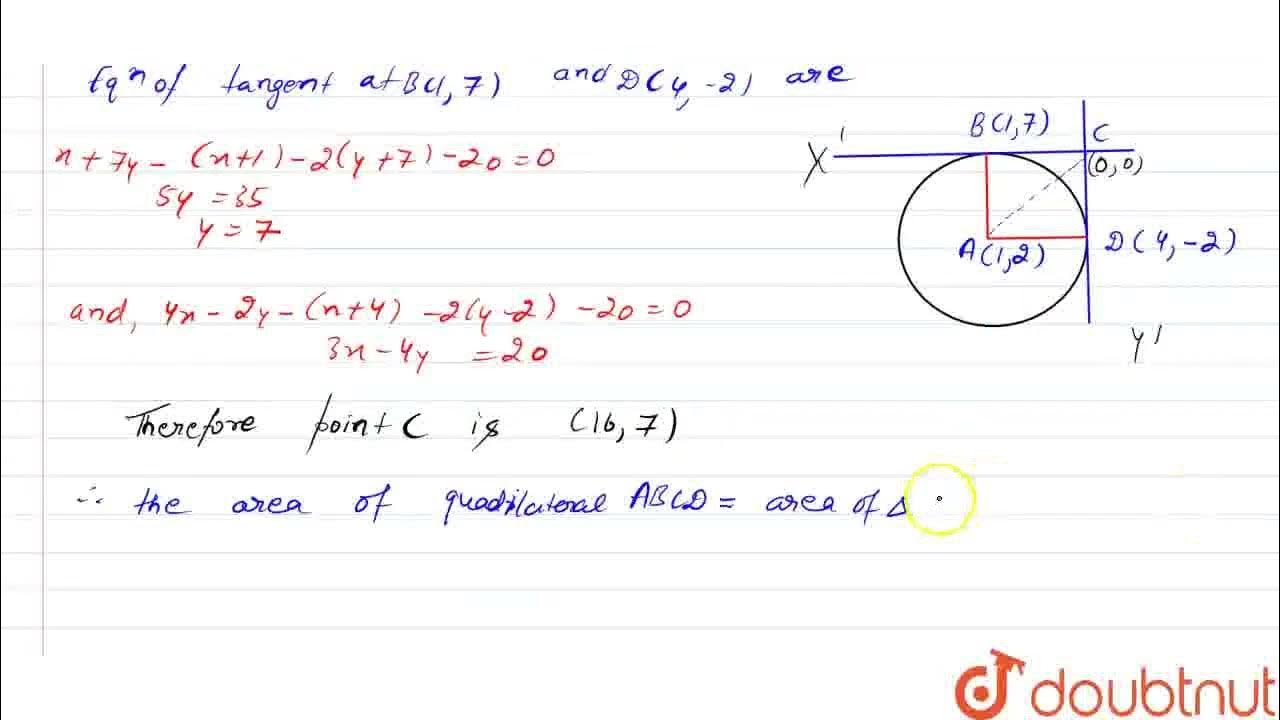 Eqⁿ of tangent at B(1, 7) and D(4, -2) are
x + 7y - (x+1) - 2(y+7) - 20 = 0
5y = 35
y = 7
and, 4x - 2y - (x+4) - 2(y-2) - 20 = 0
3x - 4y = 20
Therefore point C is (16, 7)
∴ the area of quadrilateral ABCD = area of Δ
B(1, 7)
C
X'
(0, 0)
A(1, 2)
D(4, -2)
Y'
doubtnut